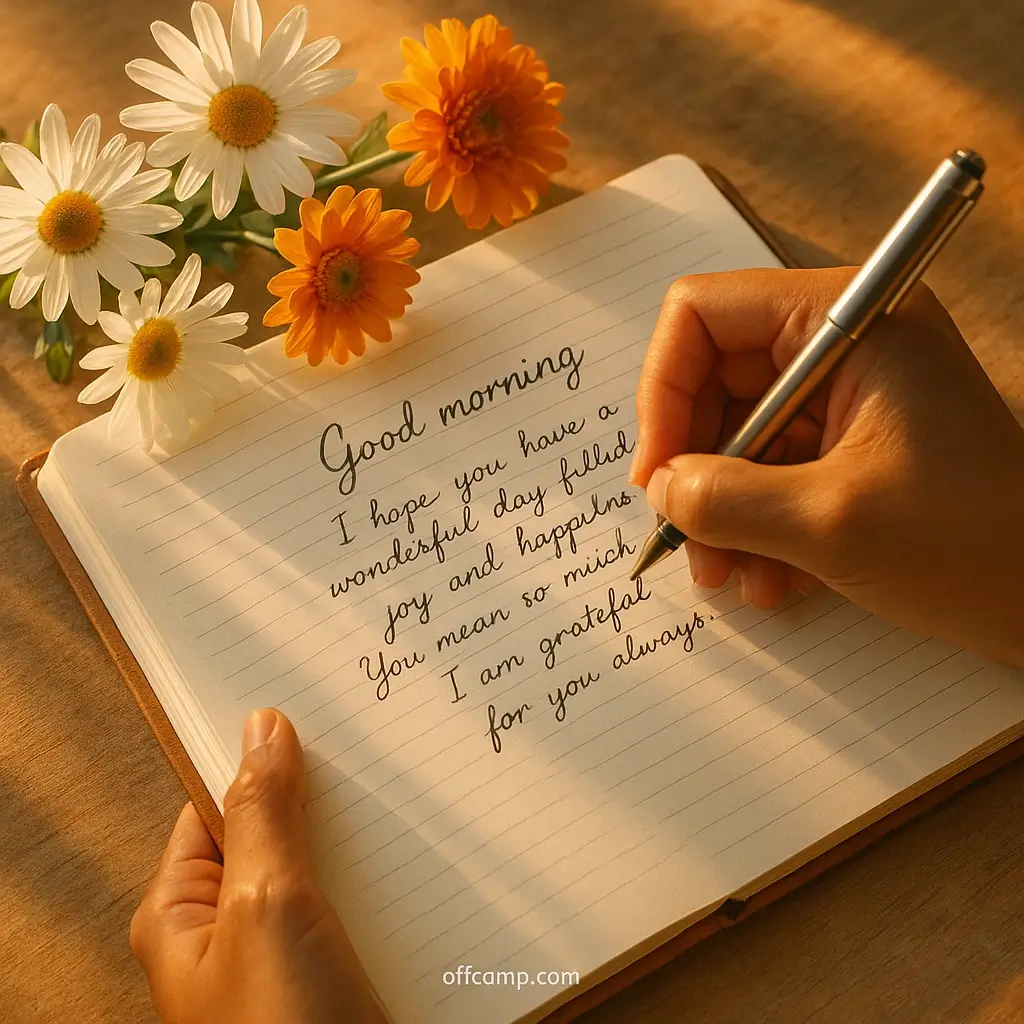 Good morning
I hope you have a
wondesful day fillid
joy and happilns.
You mean so miich
I am grateful
for you always.
offcamp.com